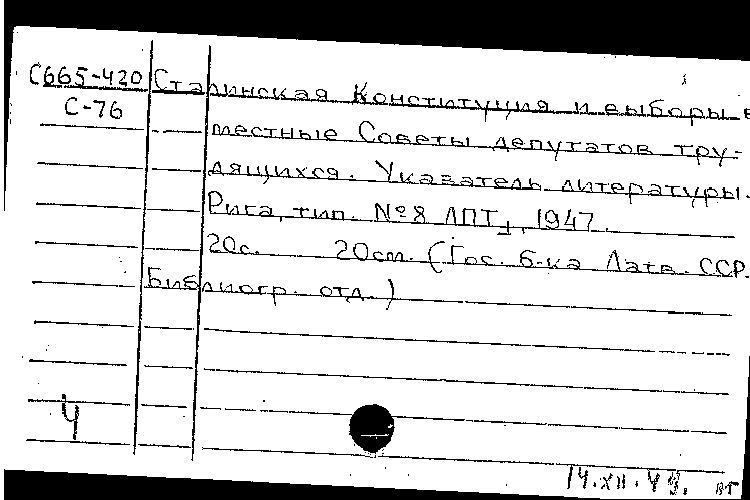 С665-420 Сталинская Конституция и выборы в
С-76 местные Советы депутатов тру-
дящихся. Указатель литературы.
Рига, тип. №8 ЛПТ, 1947.
20с. 20см. (Гос. б-ка Латв. ССР.
Библиогр. отд.)
Ч
14.XII.49. вт